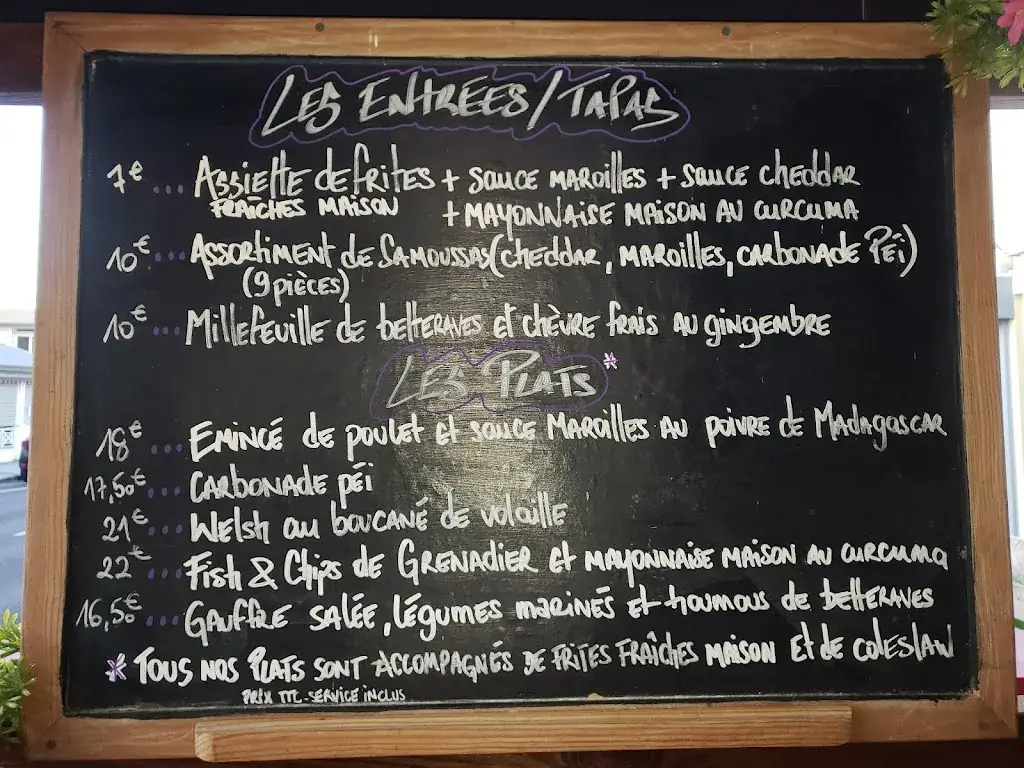 LES ENTRÉES/TAPAS
7€ ... ASSIETTE de frites + SAUCE MAROILLES + SAUCE cheddar
FRAÎCHES MAISON + MAYONNAISE MAISON AU CURCUMA
10€ ... Assortiment de Samoussas (cheddar, MAROILLES, CARBONADE Péï)
(9 pièces)
10€ ... Millefeuille de betteraves et chèvre frais au gingembre
LES PLATS*
18€ ... Emincé de poulet et sauce Maroilles au poivre de Madagascar
17,50€ ... CARBONADE péi
21€ ... Welsh au boucané de volaille
22€ ... Fish & Chips de Grenadier et mayonnaise maison au curcuma
16,50€ ... Gauffre salée, légumes marinés et houmous de betteraves
* Tous nos plats sont accompagnés de frites fraîches maison et de coleslaw
PRIX TTC - SERVICE INCLUS